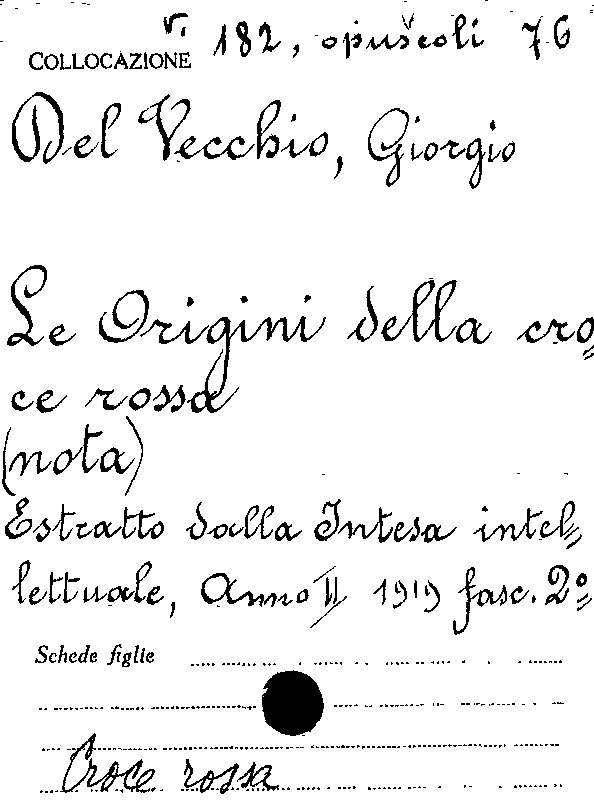 COLLOCAZIONE v. 182, opuscoli 76
Del Vecchio, Giorgio
Le Origini della cro=
ce rossa
(nota)
Estratto dalla Intesa intel=
lettuale, Anno II 1919 fasc. 2º=
Schede figlie
Croce rossa